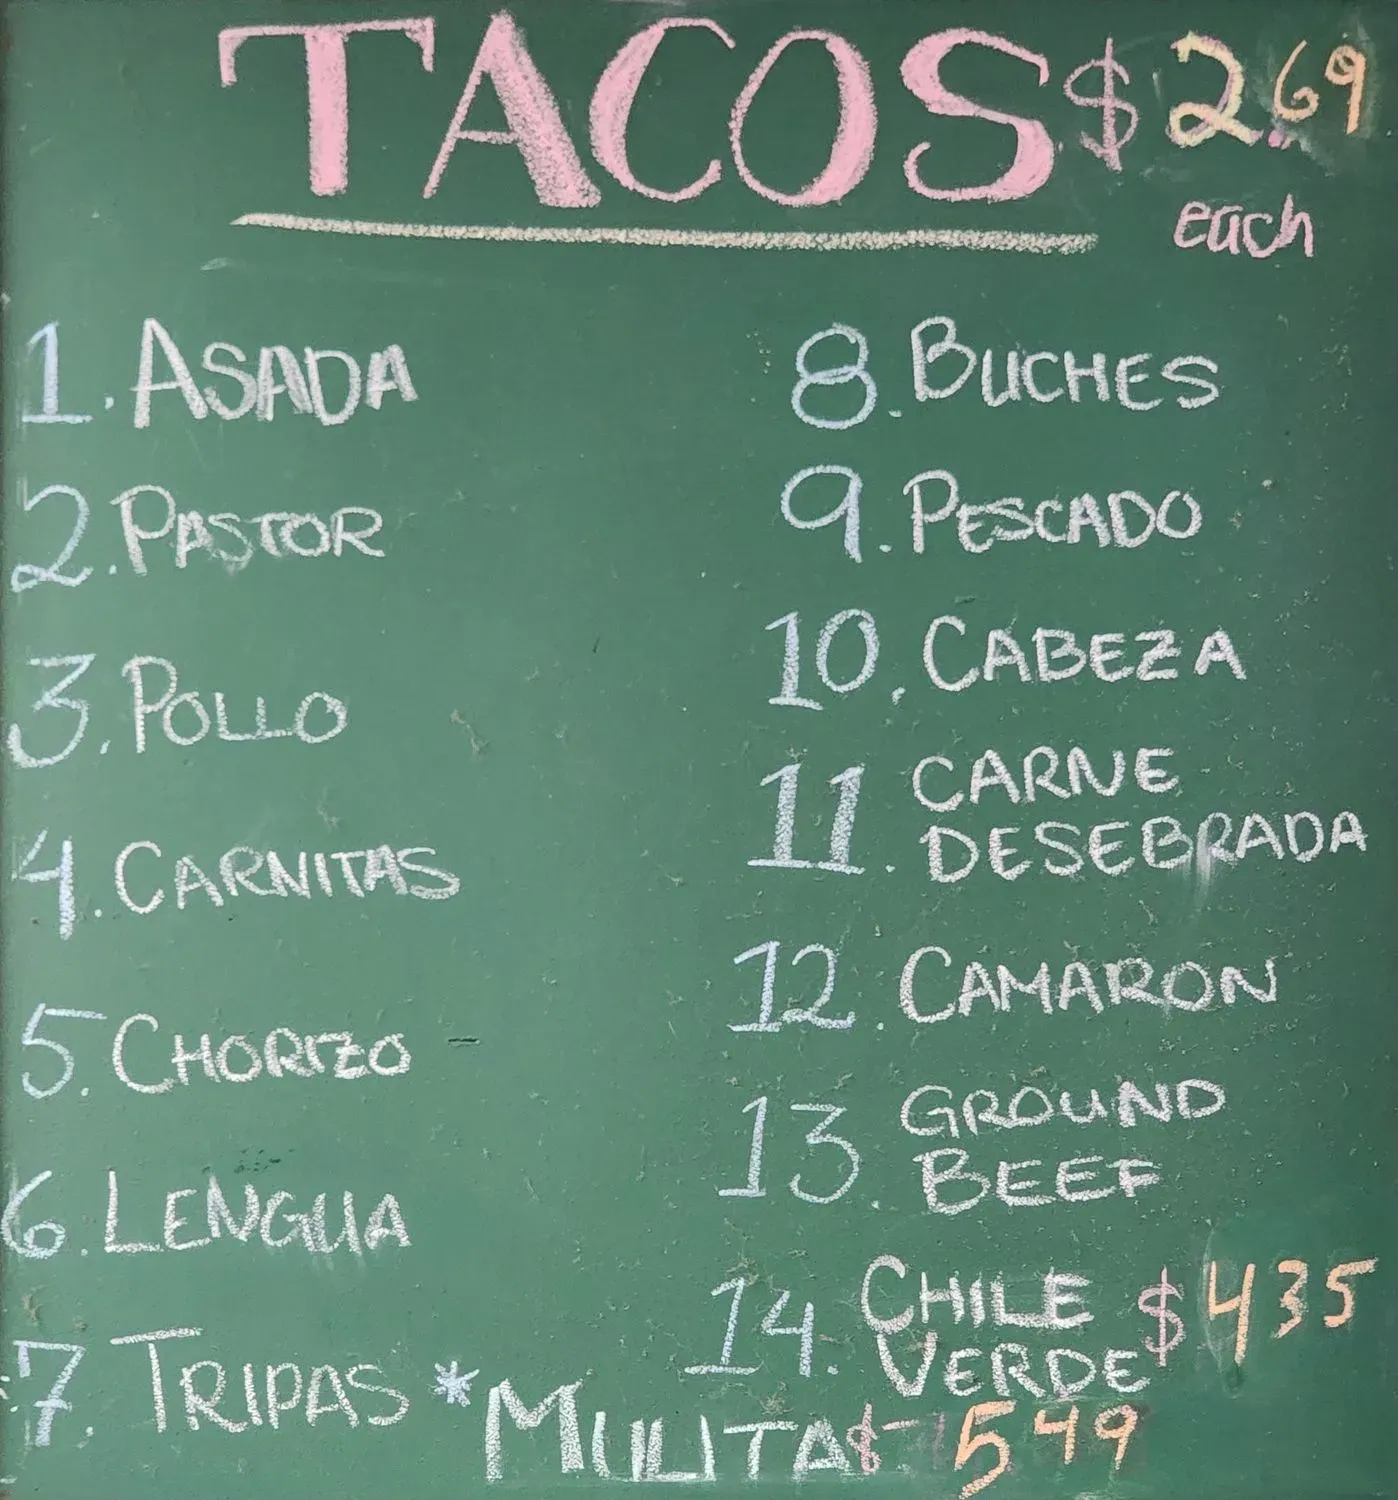 TACOS $2.69
each
1. ASADA
2. PASTOR
3. POLLO
4. CARNITAS
5. CHORIZO
6. LENGUA
7. TRIPAS
8. BUCHES
9. PESCADO
10. CABEZA
11. CARNE
DESEBRADA
12. CAMARON
13. GROUND
BEEF
14. CHILE
VERDE $435
*MULITA $549